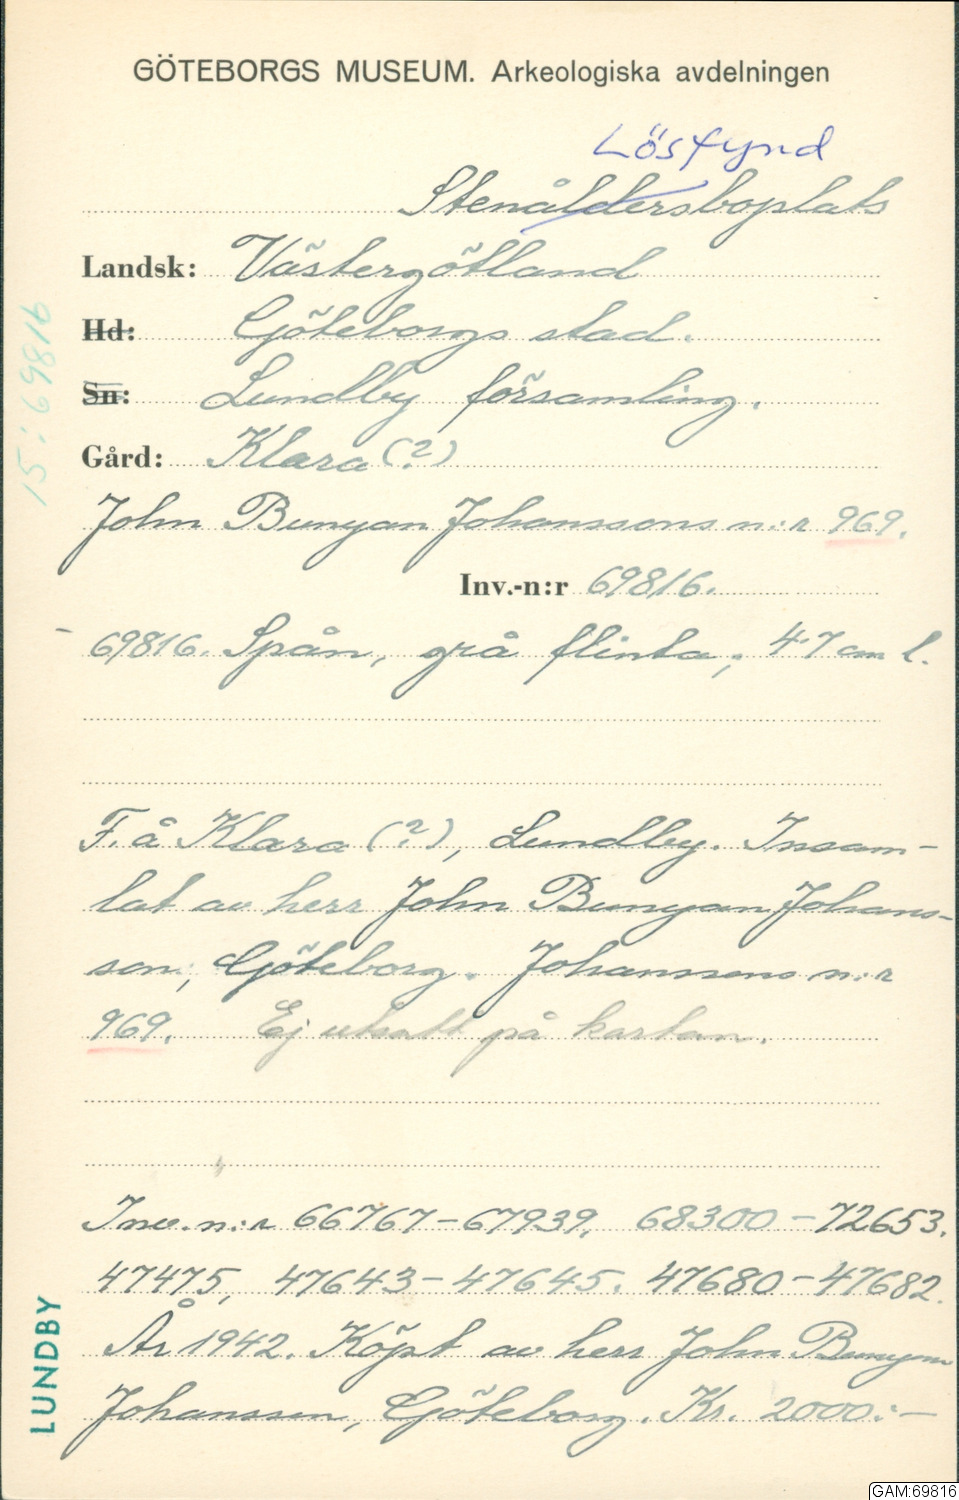 GÖTEBORGS MUSEUM. Arkeologiska avdelningen
Lösfynd
Stenåldersboplats
Landsk: Västergötland
Hd: Göteborgs stad.
Sn: Lundby församling.
Gård: Klara (?)
John Bunyan Johanssons n:r 969.
Inv.-n:r 69816.
69816. Spån, grå flinta; 4.7 cm l.
F. å Klara (?), Lundby. Insam-
lat av herr John Bunyan Johans-
son, Göteborg. Johanssons n:r
969. Ej utsatt på kartan.
Inv. n:r 66767-67939, 68300-72653.
47475, 47643-47645. 47680-47682.
År 1942. Köpt av herr John Bunyan
Johansson, Göteborg. Kr. 2000:-
15:69816
LUNDBY
GAM:69816